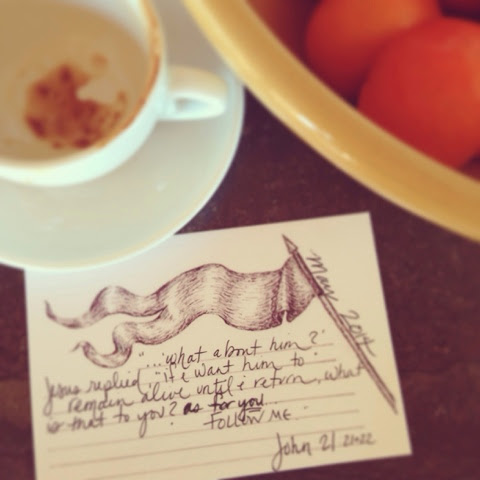 May 2014
"...what about him?"
Jesus replied, "if I want him to
remain alive until i return, what
is that to you? as for you
Follow me.
John 21 21-22